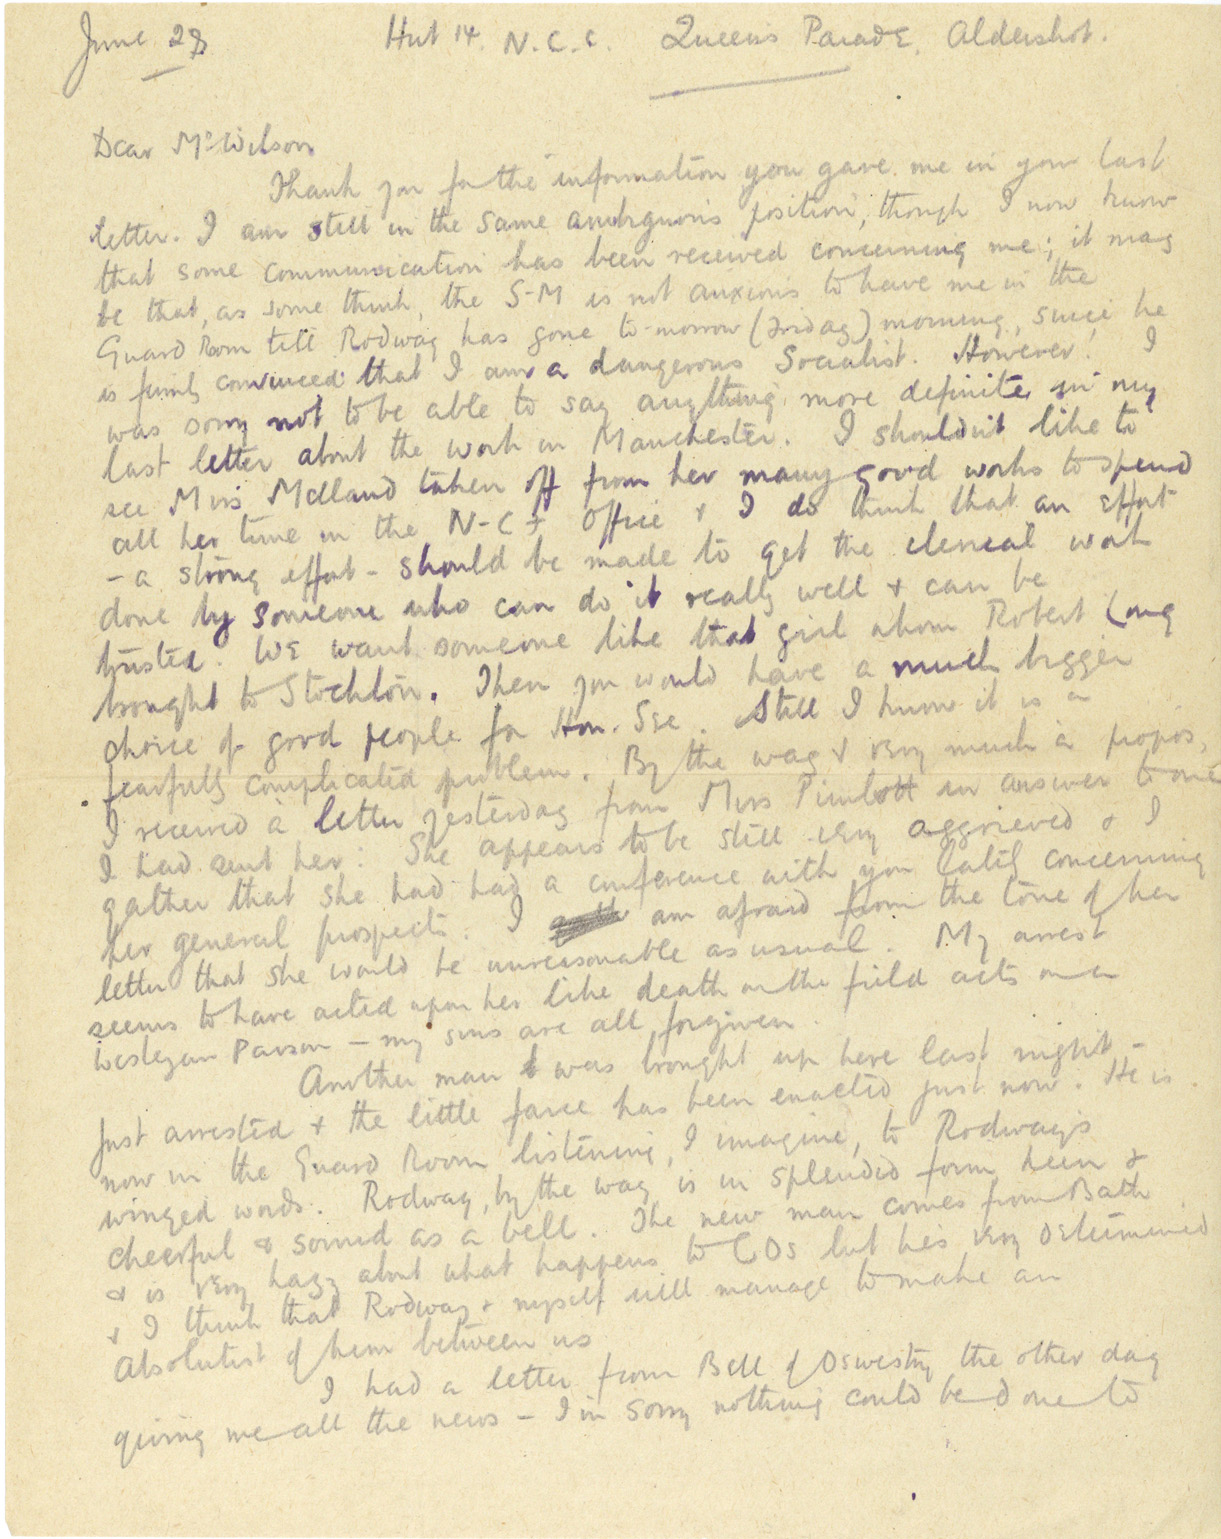 June 28 Hut 14. N.C.C. Queen's Parade, Aldershot.
Dear McWilson
Thank you for the information you gave me in your last
letter. I am still in the same ambiguous position, though I now know
that some communication has been received concerning me; it may
be that, as some think, the S-M is not anxious to have me in the
Guard Room till Rodway has gone to-morrow (Friday) morning, since he
is firmly convinced that I am a dangerous Socialist. However! I
was sorry not to be able to say anything more definite in my
last letter about the work in Manchester. I shouldn't like to
see Miss Melland taken off from her many good works to spend
all her time in the N-C F Office & I do think that an effort
- a strong effort - should be made to get the clerical work
done by someone who can do it really well & can be
trusted. We want someone like that girl whom Robert Long
brought to Stockton. Then you would have a much bigger
choice of good people for Hon. Sec. Still I know it is a
fearfully complicated problem. By the way & very much à propos,
I received a letter yesterday from Miss Pimbott in answer to one
I had sent her: She appears to be still very aggrieved & I
gather that she had had a conference with you lately concerning
her general prospects. I am afraid from the tone of her
letter that she would be unreasonable as usual. My arrest
seems to have acted upon her like death on the field acts on a
Wesleyan Parson - my sins are all forgiven.
Another man was brought up here last night -
just arrested & the little farce has been enacted just now. He is
now in the Guard Room listening, I imagine, to Rodway's
winged words. Rodway, by the way is in splendid form keen &
cheerful & sound as a bell. The new man comes from Bath
& is very hazy about what happens to COs but he's very determined
& I think that Rodway & myself will manage to make an
Absolutist of him between us
I had a letter from Bell of Oswestry the other day
giving me all the news - I'm sorry nothing could be done to